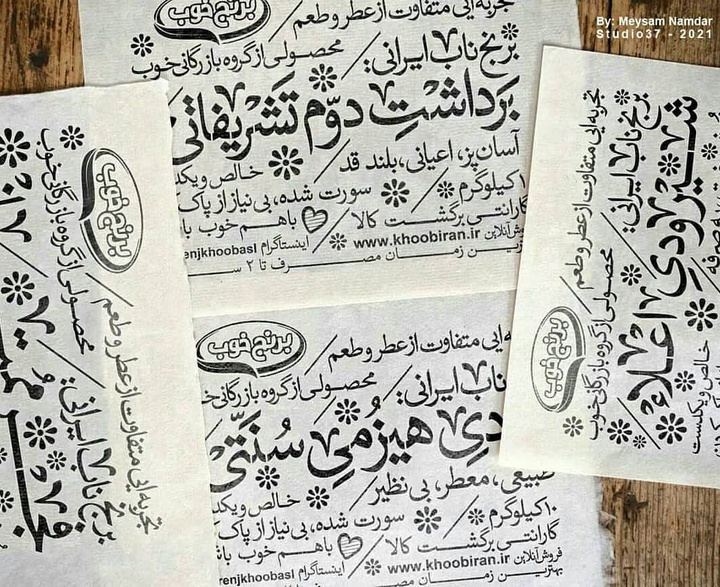 By: Meysam Namdar
Studio37 - 2021
برنج خوب
تجربه‌ایی متفاوت از عطر و طعم
محصولی از گروه بازرگانی خوب
برنج ناب ایرانی:
برداشتِ دوّم تشریفاتی
آسان‌پز، اعیانی، بلند قد
خالص و یکد
۱۰ کیلوگرم
سورت شده، بی‌نیاز از پاک
گارانتی برگشت کالا
باهم خوب با
فروش آنلاین www.khoobiran.ir
اینستاگرام enjkhoobasl
بهترین زمان مصرف تا ۲ س
برنج خوب
تجربه‌ایی متفاوت از عطر و طعم
محصولی از گروه بازرگانی خوب
برنج ناب ایرانی:
شیرودی اعلاء
خالص و یکدست
برنج خوب
ایی متفاوت از عطر و طعم
محصولی از گروه بازرگانی خ
ناب ایرانی:
دیِ هیزُمیِ سُنّتی
طبیعی، معطر، بی نظیر
خالص و یکد
۱۰ کیلوگرم
سورت شده، بی‌نیاز از پاک
گارانتی برگشت کالا
باهم خوب باش
فروش آنلاین www.khoobiran.ir
اینستاگرام renjkhoobasl
بهترین زمان مصرف
برنج خوب
تجربه‌ایی متفاوت از عطر و طعم
محصولی از گروه بازرگانی خوب
برنج ناب ایرانی: